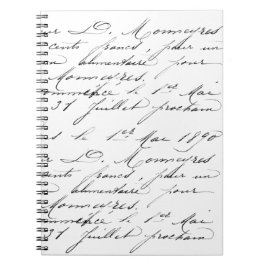 ur D. Monneyres
cents francs, pour un
au alimentaire pour
Monneyres.
ommence le 1er Mai
31 Juillet prochain
s le 1er Mai 1890
ur D. Monneyres
cents francs, pour un
au alimentaire pour
Monneyres.
ommence le 1er Mai
31 Juillet prochain